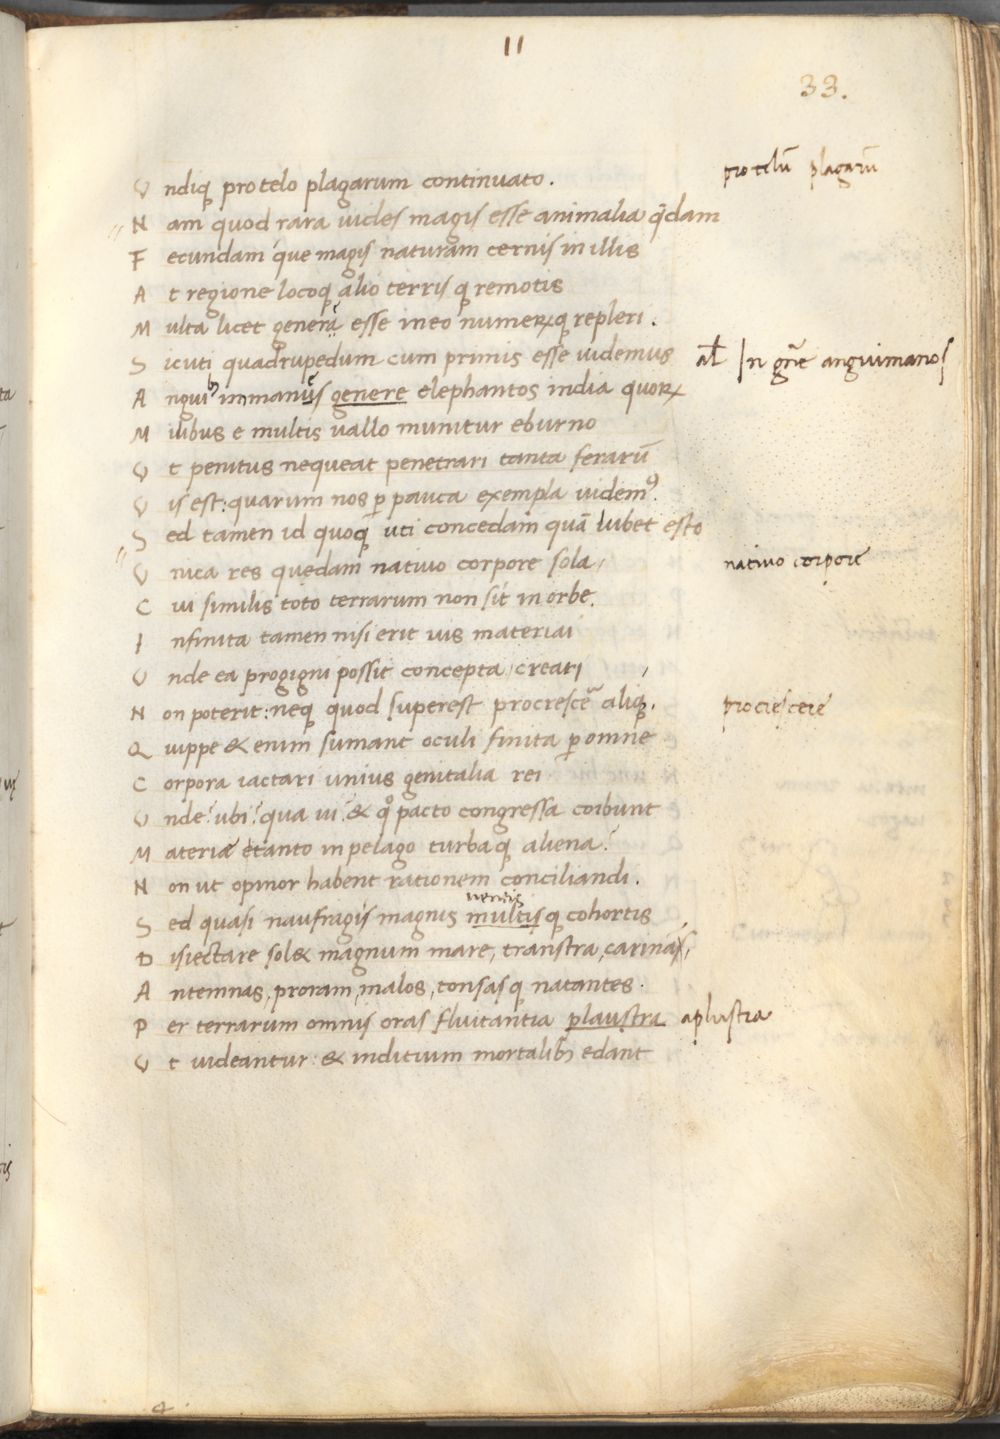 II
33.
Undiq protelo plagarum continuato.
protelū plagarū
Nam quod rara uides magis esse animalia q̄dam
Fecundam que magis naturam cernis in illis
At regione locoq alio terris q remotis
Multa licet generę esse in eo numerꝝ q repleri.
Sicuti quadrupedum cum primis esse uidemus
aƚ In gn̄e anguimanos
Angui immanes genere elephantos india quoꝝ
Milibus e multis uallo munitur eburno
Ut penitus nequeat penetrari tanta ferarū
Uis est: quarum nos ꝑ pauca exempla uidemꝰ.
Sed tamen id quoq uti concedam quā lubet esto
Unica res quedam natiuo corpore sola,
natiuo corpore
Cui similis toto terrarum non sit in orbe.
Infinita tamen nisi erit uis materiai
Unde ea progigni possit concepta, creari
Non poterit: neq quod superest procrescē aliq.
procrescere
Quippe & enim sumant oculi finita ꝑ omne
Corpora iactari unius genitalia rei
Unde? ubi? qua ui? & qͦ pacto congressa coibunt
Materiæ tanto in pelago turbaq aliena?
Non ut opinor habent rationem conciliandi.
Sed quasi naufragiis magnis multis q cohortis
Disiectare sol& magnum mare, transtra, carinas,
Antemnas, proram, malos, tonsas q natantes.
Per terrarum omnis oras fluitantia plaustra
aplustra
Ut uideantur: & inditium mortalibꝫ edant